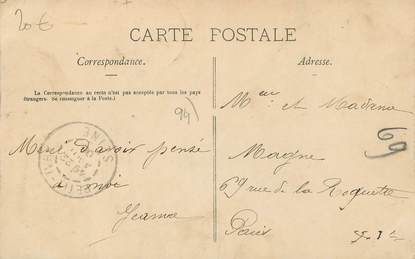 20€
CARTE POSTALE
Correspondance.
Adresse.
La Correspondance au recto n'est pas acceptée par tous les pays
étrangers. (Se renseigner à la Poste.)
94
Merci d'avoir pensé
à moi
Jeanne
SEINE
Mr et Madame
Magne
69 rue de la Roquette
Paris
69